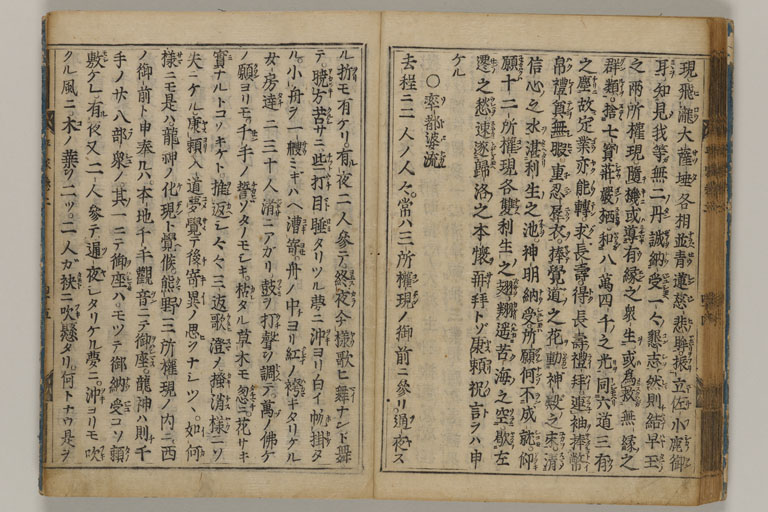 現飛瀧大薩埵各相並青蓮慈悲聯振立佐小鹿御
耳知見我等無二丹誠納受一々懇志然則結早玉
之兩所權現隨機或導有緣之衆生或為救無緣之
群類捨七寶莊嚴栖和八萬四千之光同六道三有
之塵故定業亦能轉求長壽得長壽禮拜連袖捧幣
帛禮奠無暇重忍辱衣捧覺道之花動神殿之床清
信心之水湛利生之池神明納受所願何不成就仰
願十二所權現各雙利生之翅翔遙苦海之空歇左
遷之愁速遂歸洛之本懷再拜トゾ康頼祝言ヲハ申
ケル
○率都婆流
去程ニ二人ノ人々常ハ三所權現ノ御前ニ參リ通夜ス
ル折モ有ケリ有夜二人參テ終夜今樣歌ヒ舞ナンド舞
テ曉方苦サニ些打目睡タリツル夢ニ沖ヨリ白イ帆掛タ
ル小舟ヲ一艘ミギハヘ漕寄舟ノ中ヨリ紅ノ袴キタリケル
女房達二三十人渚ニアガリ鼓ヲ打聲ヲ調テ萬ノ佛ケ
ノ願ヨリモ千手ノ誓ソタノモシキ枯タル草木モ忽ニ花サキ
實ナルトコソキケト推返シ々々三返歌澄シ搔消樣ニソ
失ニケル康頼入道夢覺テ後寄異ノ思シナシツヽ如何
樣ニモ是ハ龍神ノ化現ト覺候熊野三所權現ノ内ニ西
ノ御前ト申奉ルハ本地千手觀音ニテ御座龍神ハ則千
手ノ廿八部衆ノ其一ニテ御座ハモツテ御納受コソ頼
敷ケレ有夜又二人參テ通夜シタリケル夢ニ沖ヨリモ吹
クル風ニ木ノ葉ヲ二ツ二人カ袂ニ吹懸タリ何トナウ是ヲ